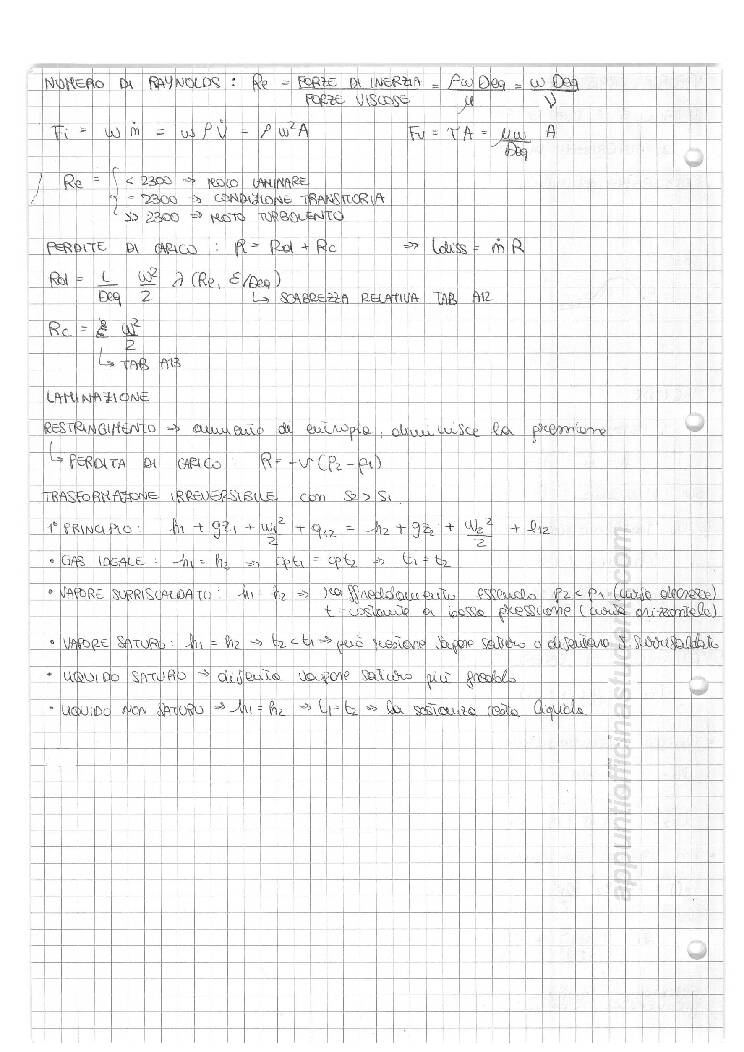 NUMERO DI RAYNOLDS : Re = FORZE DI INERZIA / FORZE VISCOSE = ρ w Deq / μ = w Deq / ν
Fi = w ṁ = w ρ V̇ = ρ w² A    Fv = τ A = μw / Deq A
Re = { < 2300 ⇒ MOTO LAMINARE
= 2300 ⇒ CONDIZIONE TRANSITORIA
>> 2300 ⇒ MOTO TURBOLENTO
PERDITE DI CARICO : R = Rd + Rc ⇒ Ldiss = ṁ R
Rd = L / Deq w² / 2 λ (Re, ε/Deq)
↳ SCABREZZA RELATIVA TAB A12
Rc = ξ w² / 2
↳ TAB A13
LAMINAZIONE
RESTRINGIMENTO ⇒ aumento di entropia, diminuisce la pressione
↳ PERDITA DI CARICO R = -v (p2 - p1)
TRASFORMAZIONE IRREVERSIBILE con s2 > s1
1° PRINCIPIO : h1 + gz1 + w1² / 2 + q12 = h2 + gz2 + w2² / 2 + l12
• GAS IDEALE : h1 = h2 ⇒ cpt1 = cpt2 ⇒ t1 = t2
• VAPORE SURRISCALDATO : h1 h2 ⇒ raffreddamento essendo p2 < p1 (curva decresce)
t = costante a bassa pressione (curva orizzontale)
• VAPORE SATURO : h1 = h2 ⇒ t2 < t1 ⇒ può restare vapore saturo o diventare V. Surriscaldato
• LIQUIDO SATURO ⇒ diventa vapore saturo più freddo
• LIQUIDO NON SATURO ⇒ h1 = h2 ⇒ t1 = t2 ⇒ la sostanza resta liquida
appuntiofficinastudenti.com